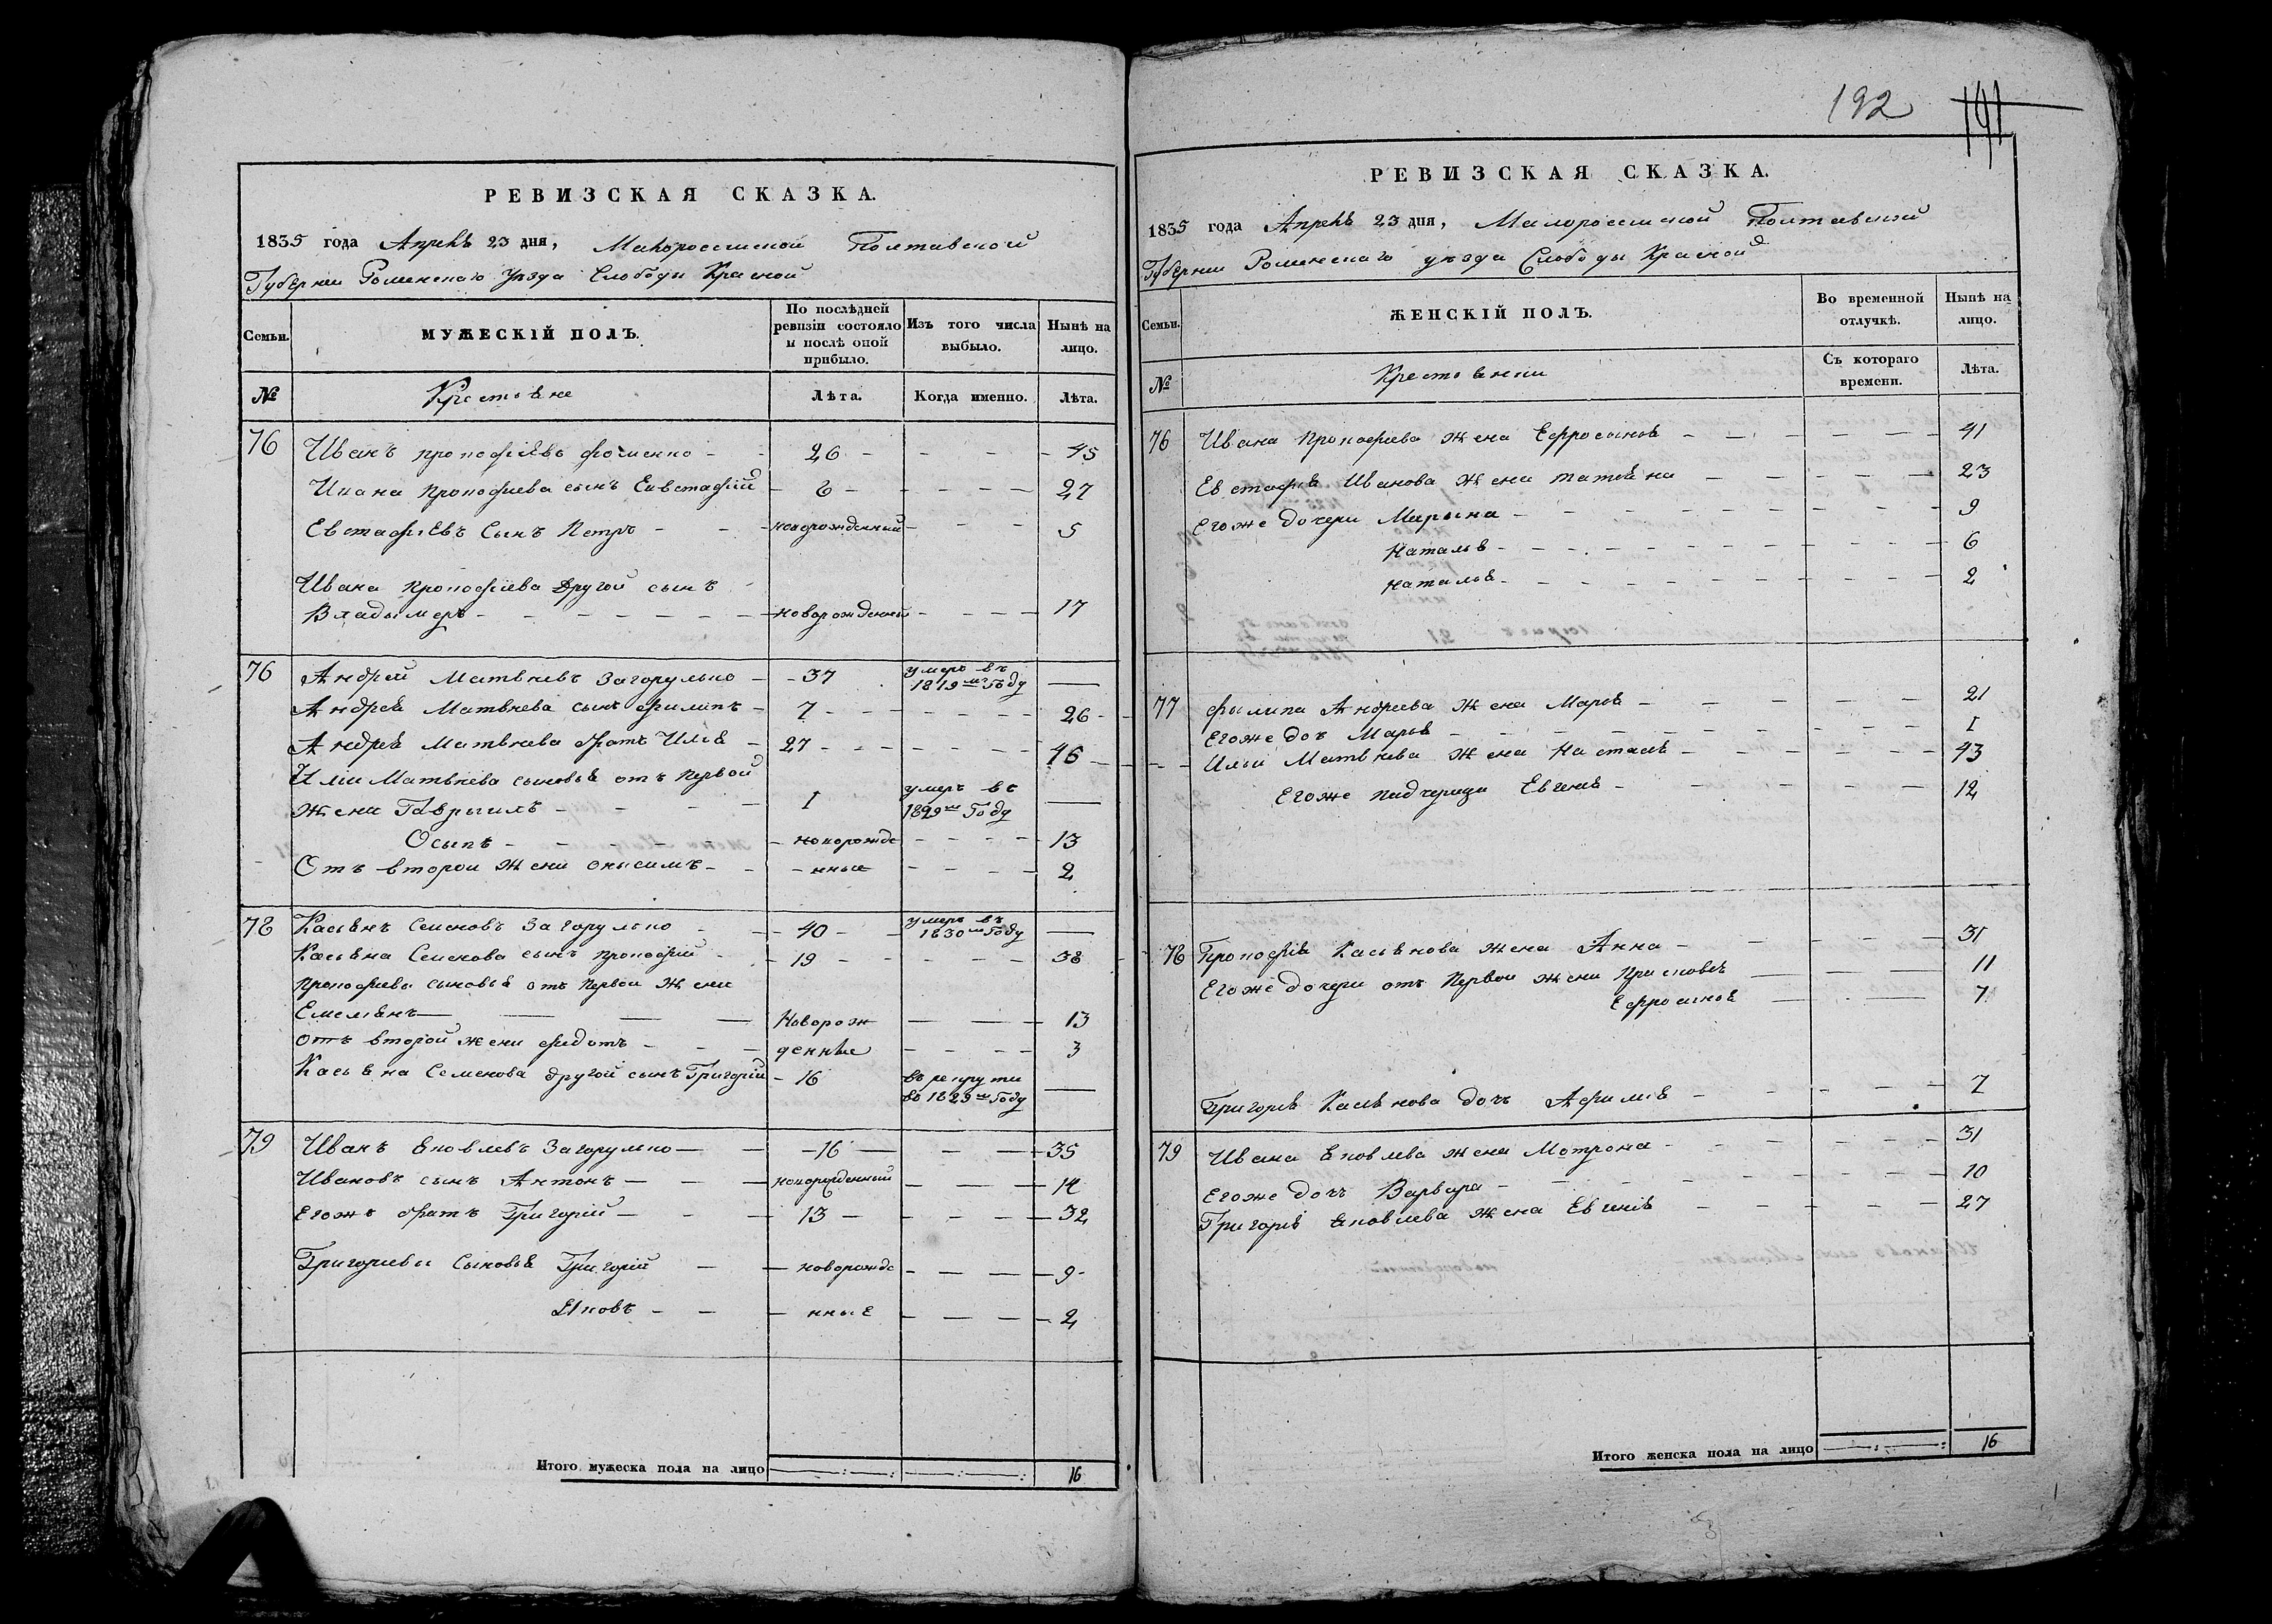 192 191
РЕВИЗСКАЯ СКАЗКА.
1835 года Апрель 23 дня, Малороссийской Полтавской
Губернии Роменского уезда Слободы Красной
Семьи. МУЖЕСКІЙ ПОЛЪ. По послѣдней ревизіи состояло и послѣ оной прибыло. Изъ того числа выбыло. Нынѣ на лицо.
№ Крестьяне Лѣта. Когда именно. Лѣта.
76 Иванъ Прокофіевъ Фоменко 26 45
Ивана Прокофиева сынъ Евстафий 6 27
Евстафиевъ Сынъ Петръ новорожденный 5
Ивана Прокофиева Другой сынъ
Владымеръ новорожденный 17
76 Андрей Матвѣевъ Загорулько 37 умеръ въ 1819мъ Году
Андрея Матвѣева сынъ Филипъ 7 26
Андрея Матвѣева братъ Илья 27 46
Ильи Матвѣева сыновья отъ Первой
жени Гаврыилъ 1 умеръ въ 1829мъ Году
Осыпъ новорожде 13
Отъ второй жени Онысимъ нные 2
78 Касьянъ Семеновъ Загорулько 40 умеръ въ 1830мъ Году
Касьяна Семенова сынъ Прокофий 19 38
Прокофиеви сыновья отъ Первой Жени
Емельянъ Новорож 13
отъ второй жени Федотъ денные 3
Касьяна Семенова другой сынъ Григорий 16 въ рекруты въ 1829мъ Году
79 Иванъ Яковлевъ Загорулько 16 35
Ивановъ сынъ Антонъ новорожденный 14
Егожъ братъ Григорий 13 32
Григориевы Сыновья Григорий новорожде 9
Яковъ нные 2
Итого мужеска пола на лицо 16
РЕВИЗСКАЯ СКАЗКА.
1835 года Апрель 23 дня, Малороссийской Полтавской
Губернии Роменского уезда Слободы Красной
Семьи. ЖЕНСКІЙ ПОЛЪ. Во временной отлучкѣ. Нынѣ на лицо.
№ Крестьянки Съ котораго времени. Лѣта.
76 Ивана Прокофиева жена Ефросыния 41
Евстафия Иванова жена татьяна 23
Егоже дочери Марына 9
Наталья 6
Наталья 2
77 Филипа Андреева жена Марья 21
Егоже дочь Марья 1
Ильи Матвѣева жена Настасья 43
Егоже падчерица Евгения 12
78 Прокофия Касьянова жена Анна 31
Егоже дочери отъ Первой жени 11
Ефросиния 7
Григория Касьянова дочь Афимия 7
79 Ивана Яковлева жена Мотрона 31
Егоже дочь Варвара 10
Григория Яковлева жена Евгения 27
Итого женска пола на лицо 16